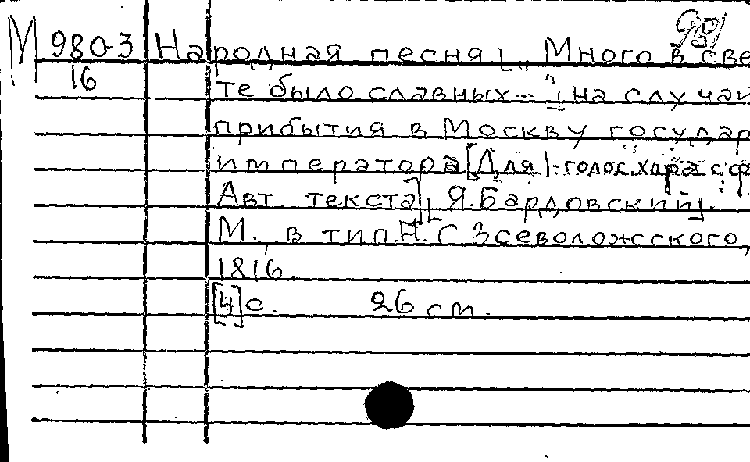 М 980-3 Народная песня [„Много в све
16 те было славных..."] на случай
прибытия в Москву государ
императора [Для 1-голос. хора с ф
Авт. текста] [Я. Бардовский].
М., в тип. Н. С. Всеволожского,
1816.
[4] с. 26 см.